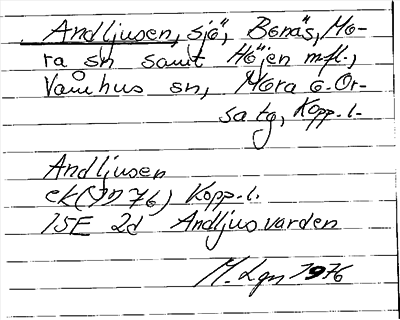 Andljusen, sjö, Bonäs, Mo-
ra sn samt Höjen m.fl.,
Våmhus sn, Mora o. Or-
sa tg, Kopp. l.
Andljusen
ek (I 76) Kopp. l.
15E 2d Andljusvarden
M. Lgn 1976